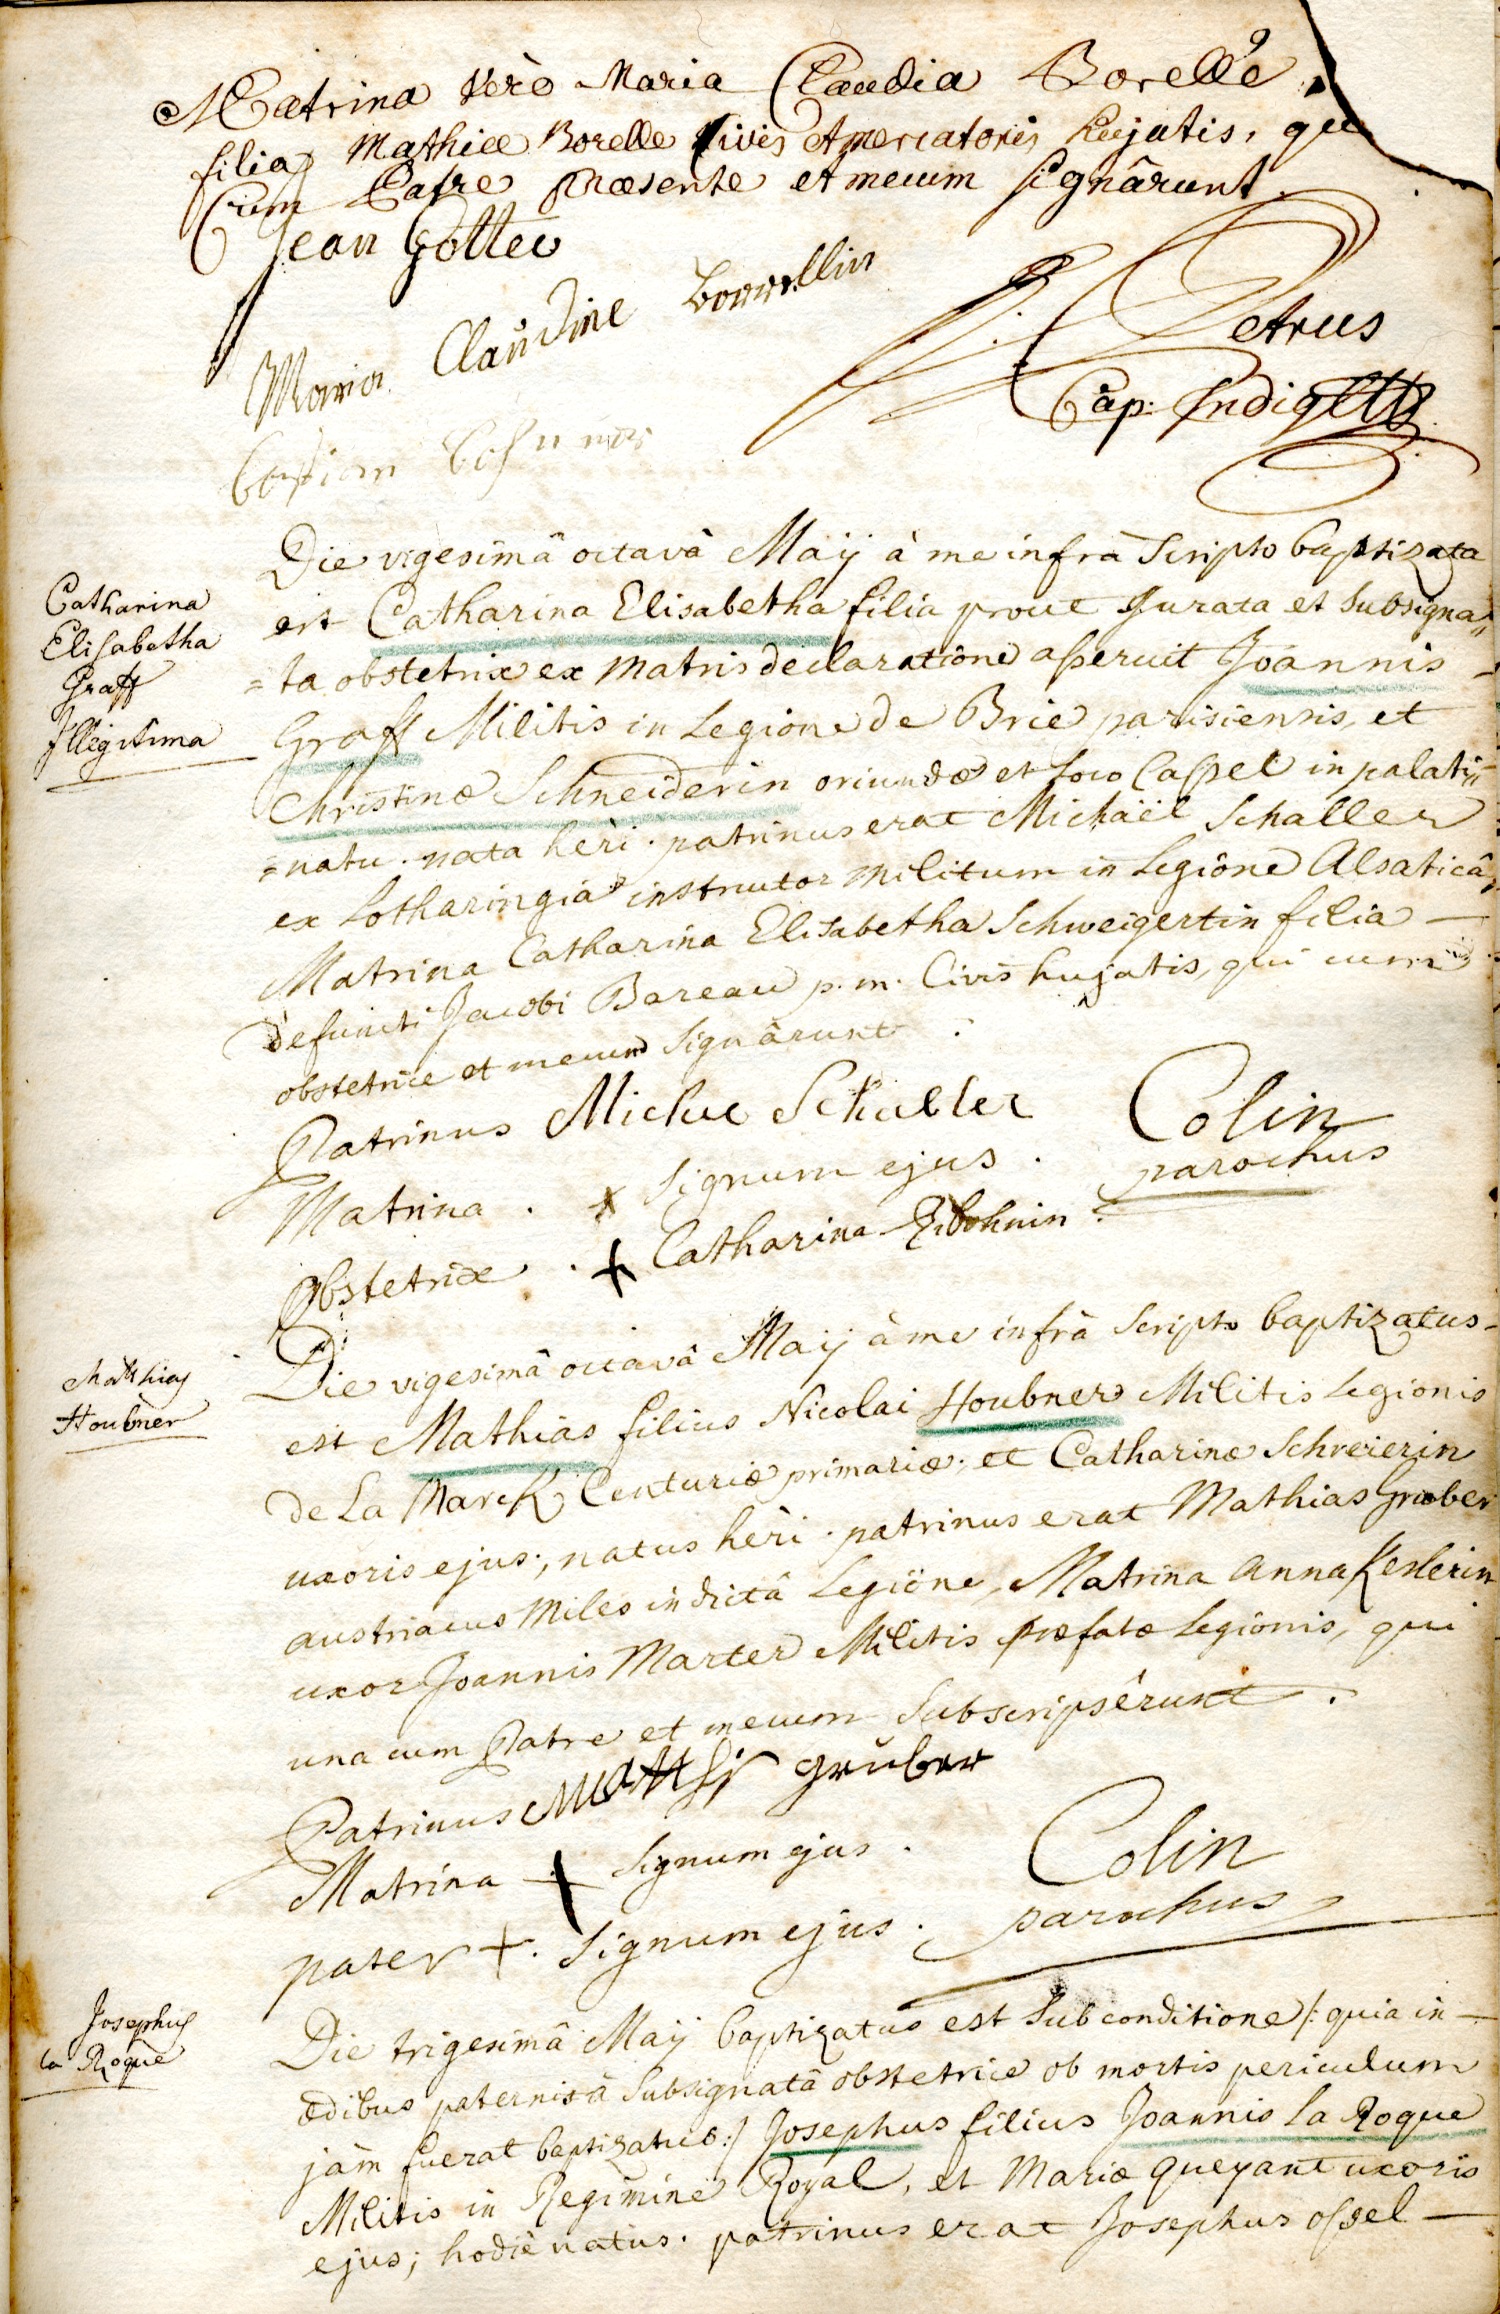 Matrina verò Maria Claudia Borelle
filia Mathiæ Borelle Civis et mercatoris hujatis, qui
Cum Patre præsente et mecum signârunt.
Jean Gotter
Maria Claudine Borrellin
Petrus
Cap:
Die vigesimâ octavâ Maij à me infrà Scripto baptizata
Catharina
Elisabetha
Graff
Illegitima
est Catharina Elisabetha filia prout Jurata et subsigna„
=ta obstetrix ex matris declaratione asseruit Joannis
Graff Militis in Legione de Brie parisiensis, et
Christinæ Schneiderin oriundæ et Loco Cassel in palati„
=natu. nata heri. patrinus erat Michäel Schaller
ex Lotharingia instructor militum in Legione Alsaticâ,
Matrina Catharina Elisabetha Schweigertin filia
defuncti Jacobi Bareau p. m. Civis hujatis, qui cum
obstetrice et mecum signârunt.
Patrinus Michel Schaller
Colin
parochus
Matrina. + signum ejus.
Obstetrix. + Catharina
Die vigesimâ octavâ Maij à me infrà Scripto baptizatus
Mathias
Houbner
est Mathias filius Nicolai Houbner Militis Legionis
de La Marck Centuriæ primariæ; et Catharinæ Schreierin
uxoris ejus; natus heri. patrinus erat Mathias Gruber
austriacus Miles in dictâ Legione, Matrina Anna Keslerin
uxor Joannis Marter Militis præfatæ Legionis, qui
una cum Patre et mecum Subscripsêrunt.
Patrinus Matthis gruber
Matrina + signum ejus.
Colin
parochus
pater +. signum ejus.
Josephus
la Roque
Die trigesimâ Maij baptizatus est sub conditione /: quia in
ædibus paternis à subsignatâ obstetrice ob mortis periculum
jàm fuerat baptizatus :/ Josephus filius Joannis la Roque
Militis in Regimine Royal, et Mariæ Queyant uxoris
ejus; hodiè natus. patrinus erat Josephus ossel